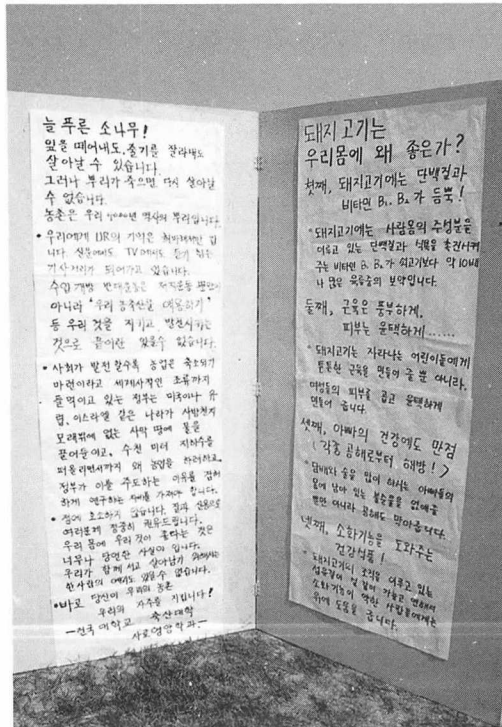 늘 푸른 소나무!
잎을 떼어내도, 줄기를 잘라내도
살아날 수 있습니다.
그러나 뿌리가 죽으면 다시 살아날
수 없습니다.
농촌은 우리 역사의 뿌리입니다.
• 우리에게 UR의 기억은 희미해져만 갑
니다. 신문에도 TV에서도 듣기 힘든
기사거리가 되어가고 있습니다.
수입개방 반대운동은 서명운동 뿐만이
아니라 "우리 농축산물 애용하기"
등 우리 것을 지키고 발전시키는
것으로 끝이란 있을수 없습니다.
• 사회가 발전할수록 농업은 축소되기
마련이라고 세계사적인 조류까지
들먹이고 있는 정부는 미국이나 유
럽, 이스라엘 같은 나라가 사방천지
모래밖에 없는 사막 땅에 물을
끌어들이고, 수천 미터 지하수를
퍼올리면서까지 왜 농업을 하려하고,
정부가 이를 주도하는 이유를 겸허
하게 연구하는 자세를 가져야 합니다.
• 정에 호소하지 않습니다. 질과 신용으로
여러분께 정중히 권유드립니다.
우리 몸에 우리 것이 좋다는 것은
너무나 당연한 사실입니다.
우리가 함께 서고 살아남기 위해서는
한사람의 예외도 있을수 없습니다.
• 바로 당신이 우리의 농촌
우리의 자주를 지킵니다!
-건국대학교 축산대학
사료영양학과-
돼지고기는
우리몸에 왜 좋은가?
첫째, 돼지고기에는 단백질과
비타민 B₁. B₂가 듬뿍!
• 돼지고기에는 사람몸의 주성분을
이루고 있는 단백질과 식욕을 촉진시켜
주는 비타민 B₁. B₂가 쇠고기보다 약 10배
나 많은 육류중의 보약입니다.
둘째, 근육은 풍부하게,
피부는 윤택하게......
• 돼지고기는 자라나는 어린이들에게
튼튼한 근육을 만들어 줄 뿐 아니라,
여성들의 피부를 곱고 윤택하게
만들어 줍니다.
셋째, 아빠의 건강에도 만점
(각종 공해로부터 해방!)
• 담배와 술을 많이 하시는 아빠들의
몸에 남아 있는 불순물을 없애줄
뿐만 아니라 공해도 막아줍니다.
넷째, 소화기능을 도와주는
건강식품!
• 돼지고기의 조직을 이루고 있는
섬유질이 결 없이 가늘고 연해서
소화기능이 약한 사람들에게는
위에 도움을 줍니다.